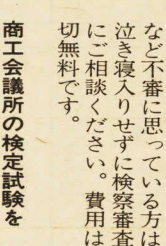 など不審に思っている方は
泣き寝入りせずに検察審査
にご相談ください。費用は
切無料です。
商工会議所の検定試験を